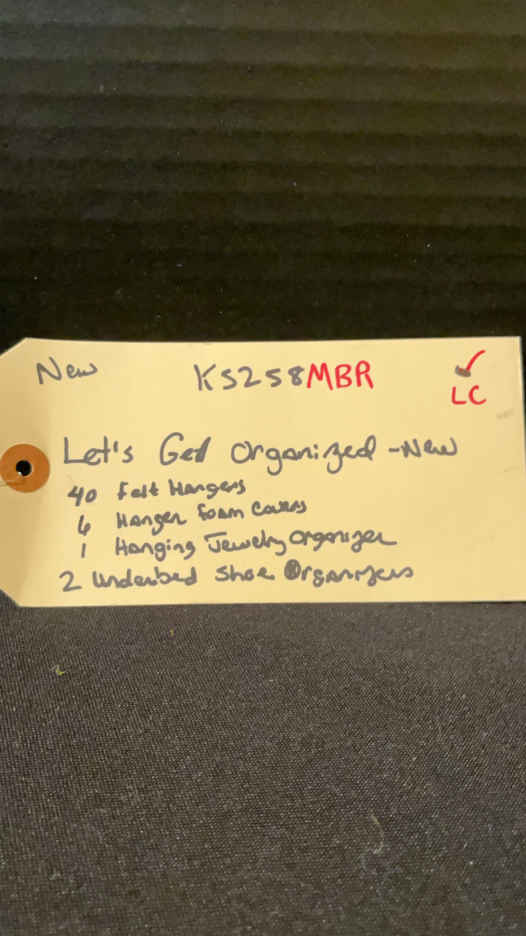 New KS258MBR ✓
LC
Let's Get Organized - New
40 Felt Hangers
6 Hanger Foam Covers
1 Hanging Jewelry Organizer
2 Underbed Shoe Organizers